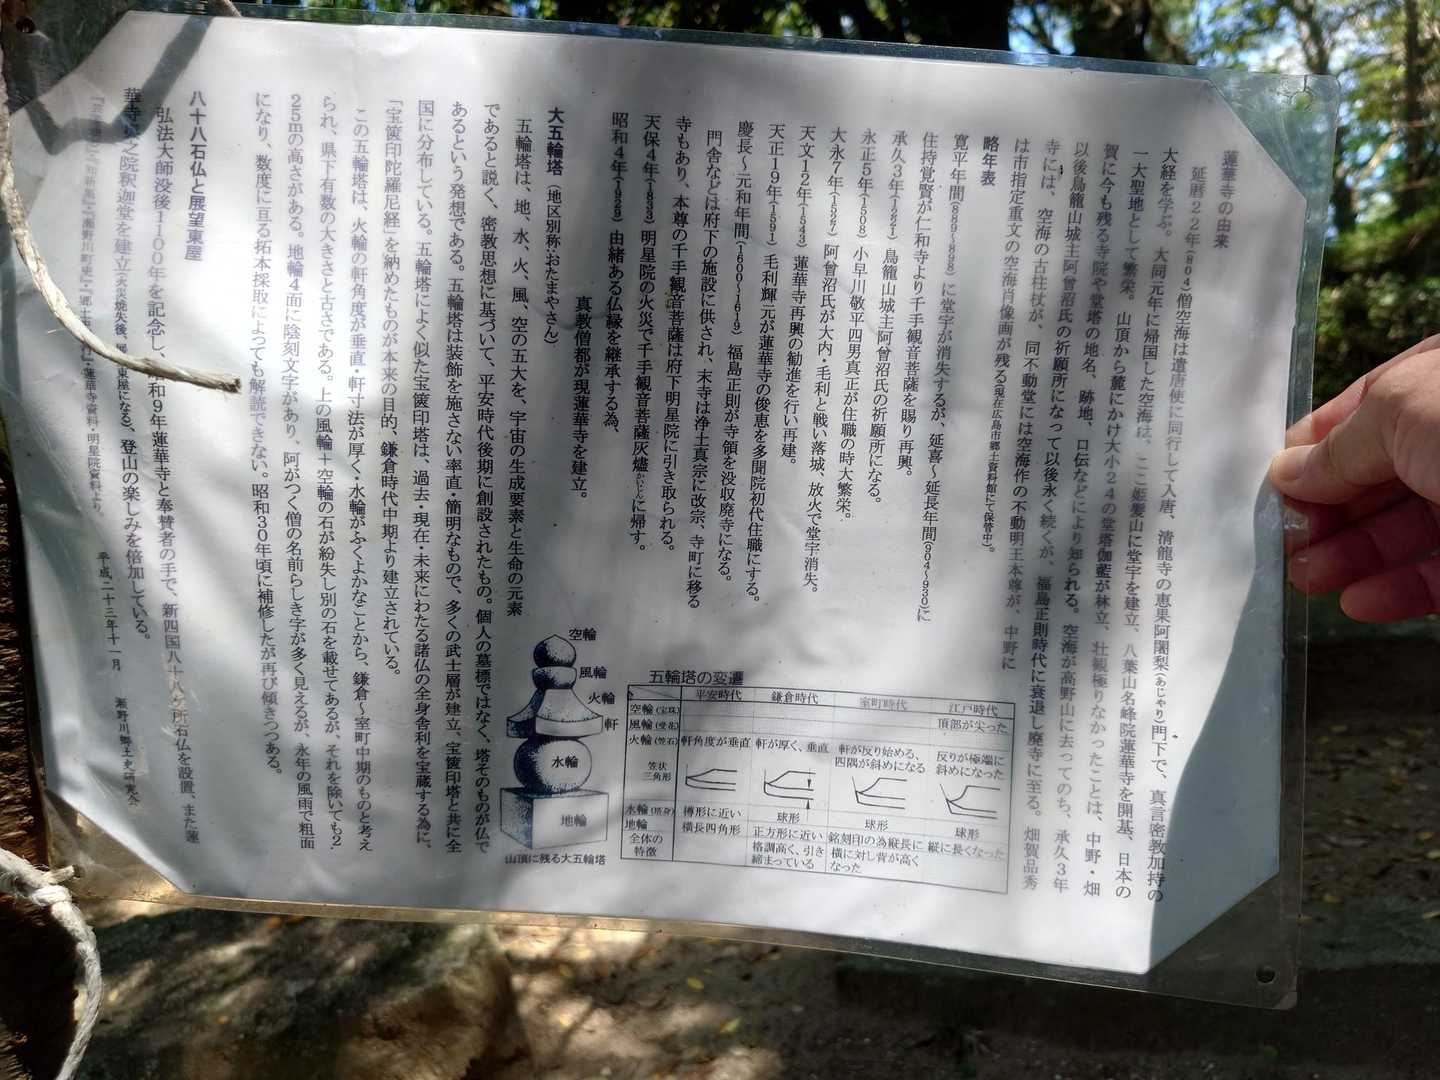 蓮華寺の由来
延暦22年(804)僧空海は遣唐使に同行して入唐、清龍寺の恵果阿闍梨(あじゃり)門下で、真言密教加持の
大経を学ぶ。大同元年に帰国した空海は、ここ姫髪山に堂宇を建立、八葉山名峰院蓮華寺を開基、日本の
一大聖地として繁栄。山頂から麓にかけ大小24の堂塔伽藍が林立、壮観極りなかったことは、中野・畑
賀に今も残る寺院や堂塔の地名、跡地、口伝などにより知られる。空海が高野山に去ってのち、承久3年
以後鳥籠山城主阿曽沼氏の祈願所になって以後永く続くが、福島正則時代に衰退し廃寺に至る。畑賀品秀
寺には、空海の古柱杖が、同不動堂には空海作の不動明王本尊が、中野に
は市指定重文の空海肖像画が残る(現在広島市郷土資料館にて保管中)。
略年表
寛平年間(889~898)に堂宇が消失するが、延喜~延長年間(904~930)に
住持覚賢が仁和寺より千手観音菩薩を賜り再興。
承久3年(1221)鳥籠山城主阿曽沼氏の祈願所になる。
永正5年(1508)小早川敬平四男真正が住職の時大繁栄。
大永7年(1527)阿曽沼氏が大内・毛利と戦い落城、放火で堂宇消失。
天文12年(1543)蓮華寺再興の勧進を行い再建。
天正19年(1591)毛利輝元が蓮華寺の俊恵を多聞院初代住職にする。
慶長~元和年間(1600~1619)福島正則が寺領を没収廃寺になる。
門舎などは府下の施設に供され、末寺は浄土真宗に改宗、寺町に移る
寺もあり、本尊の千手観音菩薩は府下明星院に引き取られる。
天保4年(1833)明星院の火災で千手観音菩薩灰燼(かいじん)に帰す。
昭和4年(1929)由緒ある仏縁を継承する為、
真教僧都が現蓮華寺を建立。
大五輪塔(地区別称:おたまやさん)
五輪塔は、地、水、火、風、空の五大を、宇宙の生成要素と生命の元素
であると説く、密教思想に基づいて、平安時代後期に創設されたもの。個人の墓標ではなく、塔そのものが仏で
あるという発想である。五輪塔は装飾を施さない率直・簡明なもので、多くの武士層が建立、宝篋印塔と共に全
国に分布している。五輪塔によく似た宝篋印塔は、過去・現在・未来にわたる諸仏の全身舎利を宝蔵する為に、
「宝篋印陀羅尼経」を納めたものが本来の目的、鎌倉時代中期より建立されている。
この五輪塔は、火輪の軒角度が垂直・軒寸法が厚く・水輪がふくよかなことから、鎌倉~室町中期のものと考え
られ、県下有数の大きさと古さである。上の風輪+空輪の石が紛失し別の石を載せてあるが、それを除いても2
25mの高さがある。地輪4面に陰刻文字があり、阿がつく僧の名前らしき字が多く見えるが、永年の風雨で粗面
になり、数度に亘る拓本採取によっても解読できない。昭和30年頃に補修したが再び傾きつつある。
空輪
風輪
火輪
軒
水輪
地輪
山頂に残る大五輪塔
五輪塔の変遷
平安時代 鎌倉時代 室町時代 江戸時代
空輪(宝珠)
風輪(受花) 頂部が尖った
火輪(笠石) 軒角度が垂直 軒が厚く、垂直 軒が反り始める、四隅が斜めになる 反りが極端に斜めになった
笠状三角形
水輪(塔身) 樽形に近い 球形 球形 球形
地輪 横長四角形 正方形に近い 銘刻印の為縦長に 縦に長くなった
全体の特徴 格調高く、引き締まっている 横に対し背が高くなった
八十八石仏と展望東屋
弘法大師没後1100年を記念し、昭和9年蓮華寺と奉賛者の手で、新四国八十八ヶ所石仏を設置、また蓮
華寺 之院釈迦堂を建立(火災焼失後、 東屋になる)、登山の楽しみを倍加している。
「知新集」「瀬野川町史」・蓮華寺資料・明星院資料より。
平成二十三年十一月 瀬野川郷土史研究会